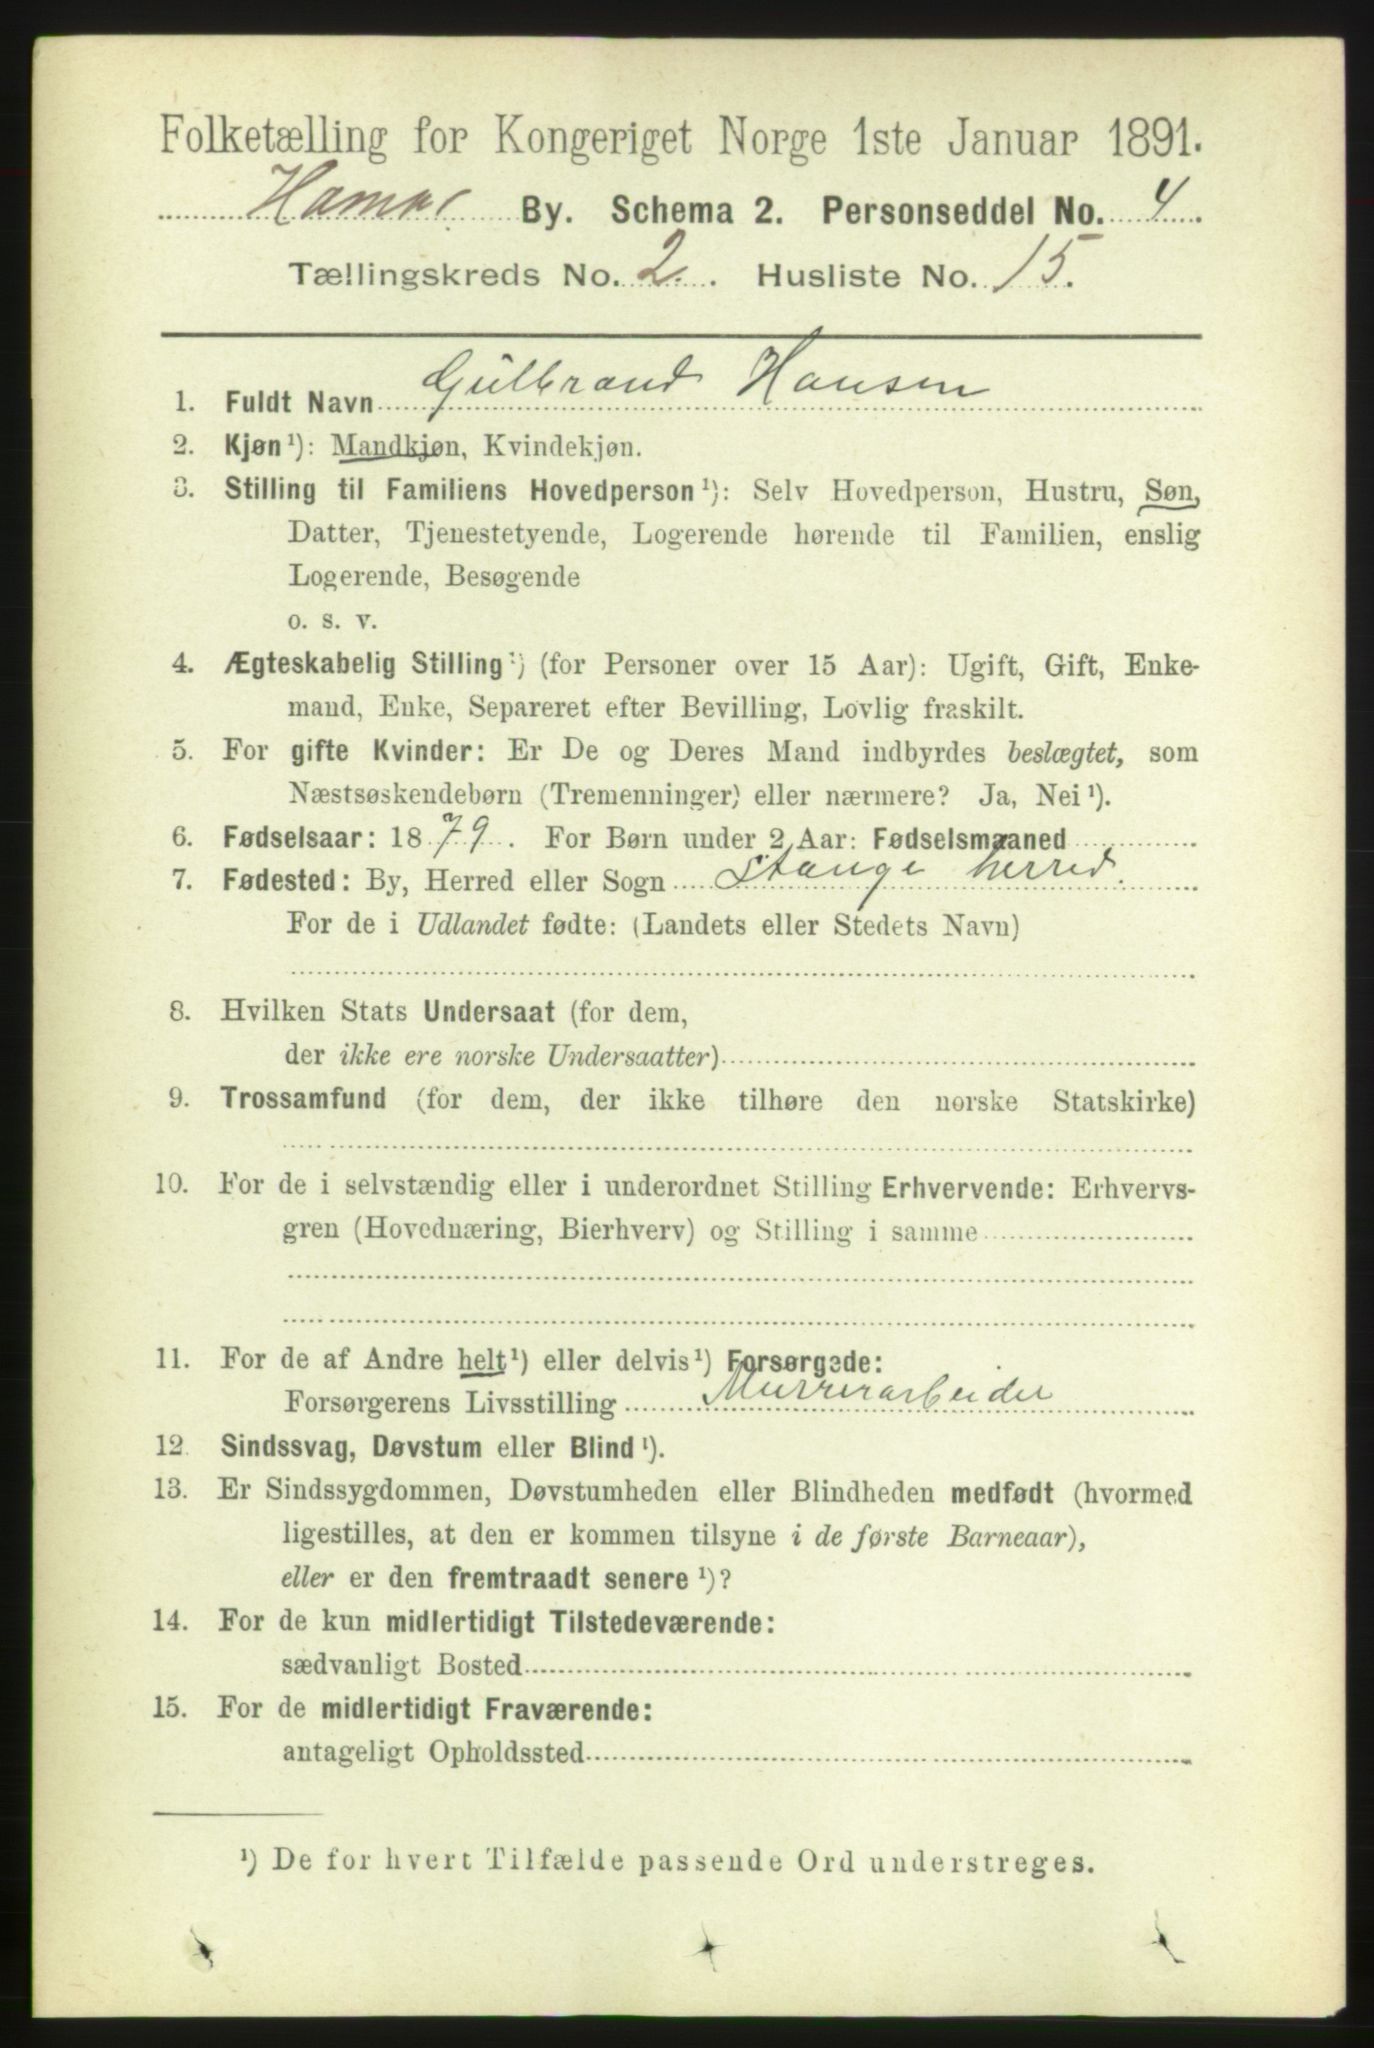 Folketælling for Kongeriget Norge 1ste Januar 1891.
Hamar By. Schema 2. Personseddel No. 4.
Tællingskreds No. 2. Husliste No. 15.
1. Fuldt Navn Gulbrand Hansen
2. Kjøn¹): Mandkjøn, Kvindekjøn.
3. Stilling til Familiens Hovedperson¹): Selv Hovedperson, Hustru, Søn,
Datter, Tjenestetyende, Logerende hørende til Familien, enslig
Logerende, Besøgende
o. s. v.
4. Ægteskabelig Stilling¹) (for Personer over 15 Aar): Ugift, Gift, Enke-
mand, Enke, Separeret efter Bevilling, Lovlig fraskilt.
5. For gifte Kvinder: Er De og Deres Mand indbyrdes beslægtet, som
Næstsøskendebørn (Tremenninger) eller nærmere? Ja, Nei¹).
6. Fødselsaar: 1879. For Børn under 2 Aar: Fødselsmaaned
7. Fødested: By, Herred eller Sogn Stange herred.
For de i Udlandet fødte: (Landets eller Stedets Navn)
8. Hvilken Stats Undersaat (for dem,
der ikke ere norske Undersaatter)
9. Trossamfund (for dem, der ikke tilhøre den norske Statskirke)
10. For de i selvstændig eller i underordnet Stilling Erhvervende: Erhvervs-
gren (Hovednæring, Bierhverv) og Stilling i samme
11. For de af Andre helt¹) eller delvis¹) Forsørgede:
Forsørgerens Livsstilling Murerarbeider
12. Sindssvag, Døvstum eller Blind¹).
13. Er Sindssygdommen, Døvstumheden eller Blindheden medfødt (hvormed
ligestilles, at den er kommen tilsyne i de første Barneaar),
eller er den fremtraadt senere¹)?
14. For de kun midlertidigt Tilstedeværende:
sædvanligt Bosted
15. For de midlertidigt Fraværende:
antageligt Opholdssted
¹) De for hvert Tilfælde passende Ord understreges.